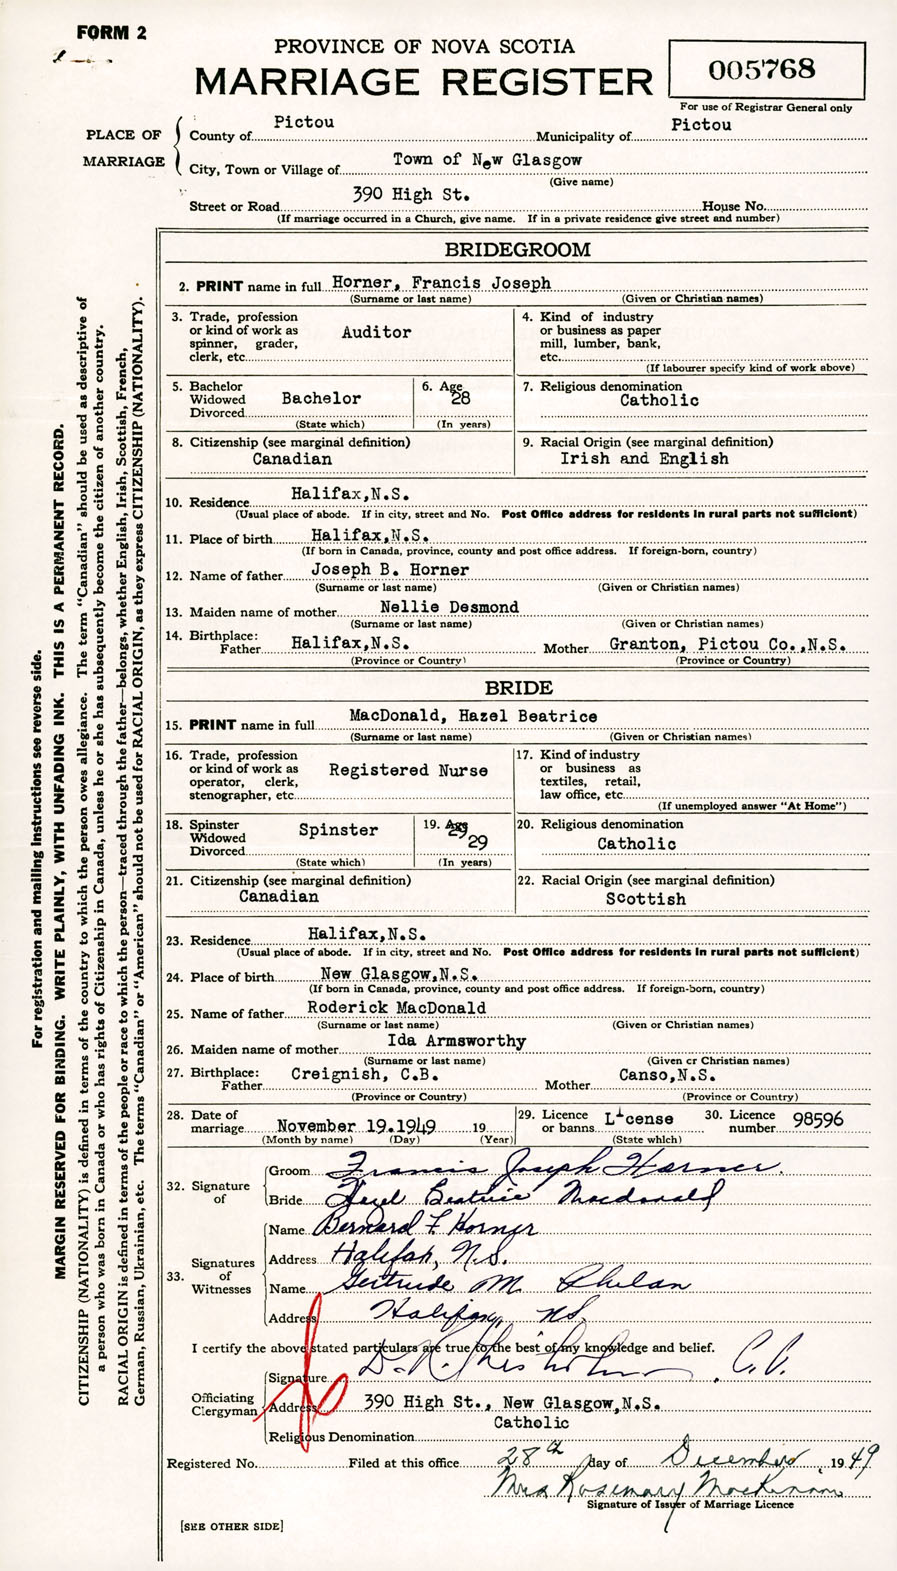 FORM 2
PROVINCE OF NOVA SCOTIA
MARRIAGE REGISTER
005768
For use of Registrar General only
PLACE OF MARRIAGE
County of Pictou Municipality of Pictou
City, Town or Village of Town of New Glasgow
(Give name)
Street or Road 390 High St. House No.
(If marriage occurred in a Church, give name. If in a private residence give street and number)
BRIDEGROOM
2. PRINT name in full Horner, Francis Joseph
(Surname or last name) (Given or Christian names)
3. Trade, profession or kind of work as spinner, grader, clerk, etc. Auditor
4. Kind of industry or business as paper mill, lumber, bank, etc.
(If labourer specify kind of work above)
5. Bachelor Widowed Divorced Bachelor
(State which)
6. Age 28
(In years)
7. Religious denomination Catholic
8. Citizenship (see marginal definition) Canadian
9. Racial Origin (see marginal definition) Irish and English
10. Residence Halifax,N.S.
(Usual place of abode. If in city, street and No. Post Office address for residents in rural parts not sufficient)
11. Place of birth Halifax,N.S.
(If born in Canada, province, county and post office address. If foreign-born, country)
12. Name of father Joseph B. Horner
(Surname or last name) (Given or Christian names)
13. Maiden name of mother Nellie Desmond
(Surname or last name) (Given or Christian names)
14. Birthplace: Father Halifax,N.S. Mother Granton, Pictou Co.,N.S.
(Province or Country) (Province or Country)
BRIDE
15. PRINT name in full MacDonald, Hazel Beatrice
(Surname or last name) (Given or Christian names)
16. Trade, profession or kind of work as operator, clerk, stenographer, etc. Registered Nurse
17. Kind of industry or business as textiles, retail, law office, etc.
(If unemployed answer "At Home")
18. Spinster Widowed Divorced Spinster
(State which)
19. Age 29
(In years)
20. Religious denomination Catholic
21. Citizenship (see marginal definition) Canadian
22. Racial Origin (see marginal definition) Scottish
23. Residence Halifax,N.S.
(Usual place of abode. If in city, street and No. Post Office address for residents in rural parts not sufficient)
24. Place of birth New Glasgow,N.S.
(If born in Canada, province, county and post office address. If foreign-born, country)
25. Name of father Roderick MacDonald
(Surname or last name) (Given or Christian names)
26. Maiden name of mother Ida Armsworthy
(Surname or last name) (Given or Christian names)
27. Birthplace: Father Creignish, C.B. Mother Canso,N.S.
(Province or Country) (Province or Country)
28. Date of marriage November 19.1949 19
(Month by name) (Day) (Year)
29. Licence or banns License
(State which)
30. Licence number 98596
32. Signature of
Groom Francis Joseph Horner.
Bride Hazel Beatrice Macdonald
33. Signatures of Witnesses
Name Bernard F Horner
Address Halifax, N.S.
Name Gertrude M. Phelan
Address Halifax, NS.
I certify the above stated particulars are true to the best of my knowledge and belief.
Officiating Clergyman
Signature D. R. Chisholm, C.C.
Address 390 High St., New Glasgow,N.S.
Religious Denomination Catholic
Registered No. Filed at this office 28th day of December, 1949
Mrs Rosemary MacKinnon
Signature of Issuer of Marriage Licence
[SEE OTHER SIDE]
For registration and mailing instructions see reverse side.
MARGIN RESERVED FOR BINDING. WRITE PLAINLY, WITH UNFADING INK. THIS IS A PERMANENT RECORD.
CITIZENSHIP (NATIONALITY) is defined in terms of the country to which the person owes allegiance. The term "Canadian" should be used as descriptive of
a person who was born in Canada or who has rights of Citizenship in Canada, unless he or she has subsequently become the citizen of another country.
RACIAL ORIGIN is defined in terms of the people or race to which the person—traced through the father—belongs, whether English, Irish, Scottish, French,
German, Russian, Ukrainian, etc. The terms "Canadian" or "American" should not be used for RACIAL ORIGIN, as they express CITIZENSHIP (NATIONALITY).